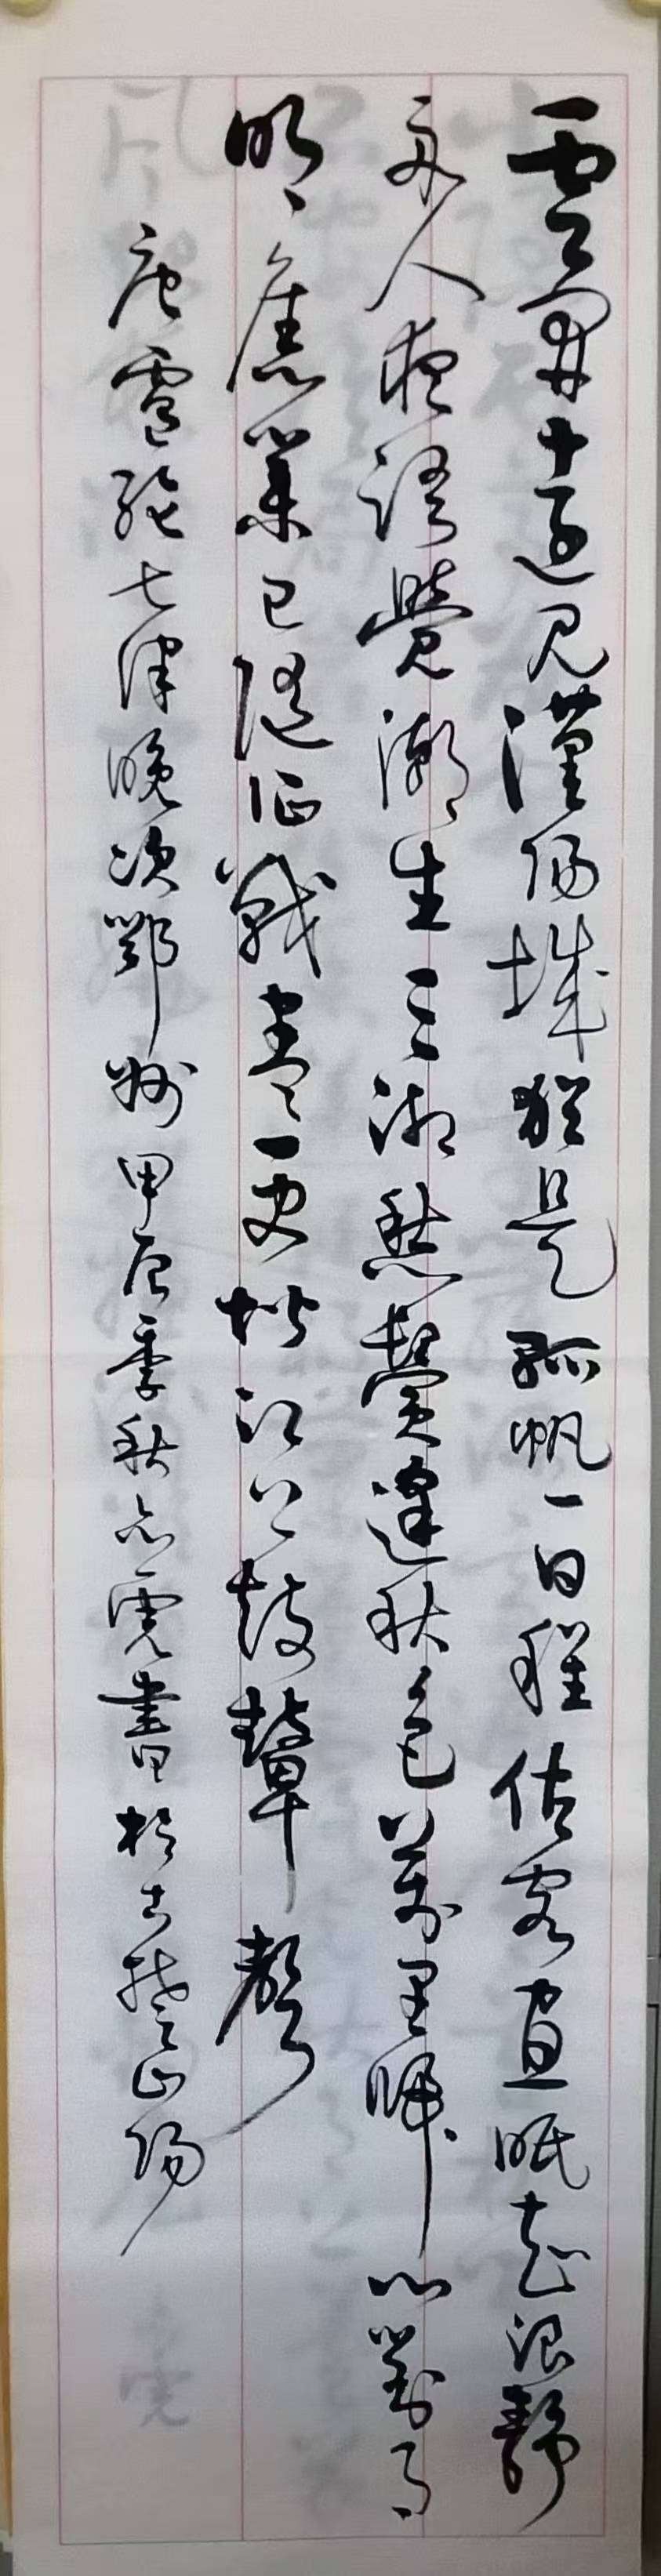 雲開遠見漢陽城猶是孤帆一日程估客晝眠知浪靜
舟人夜語覺潮生三湘愁鬢逢秋色萬里歸心對月
明舊業已隨征戰盡更堪江上鼓鼙聲
唐盧綸七律晚次鄂州甲辰季秋亦書於古楚山陽